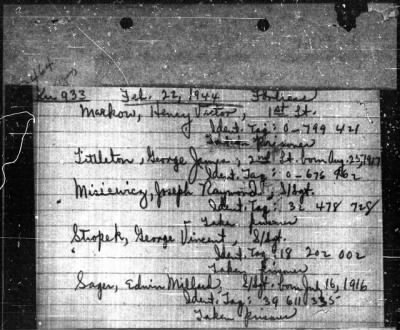 464
Ku 933 Feb. 22, 1944
Markow, Henry Victor, 1st Lt.
Ident. Tag: 0-799 421
Taken prisoner
Tittleton, George James, 2nd Lt. born Aug. 25, 1917
Ident. Tag: 0-676 962
Misiewicz, Joseph Raymond, S/Sgt.
Ident. Tag: 32 478 728
Taken prisoner
Stropek, George Vincent, S/Sgt.
Ident. Tag: 18 202 002
Taken prisoner
Sager, Edwin Millard, S/Sgt. born Jul 16, 1916
Ident. Tag: 39 611 335
Taken prisoner